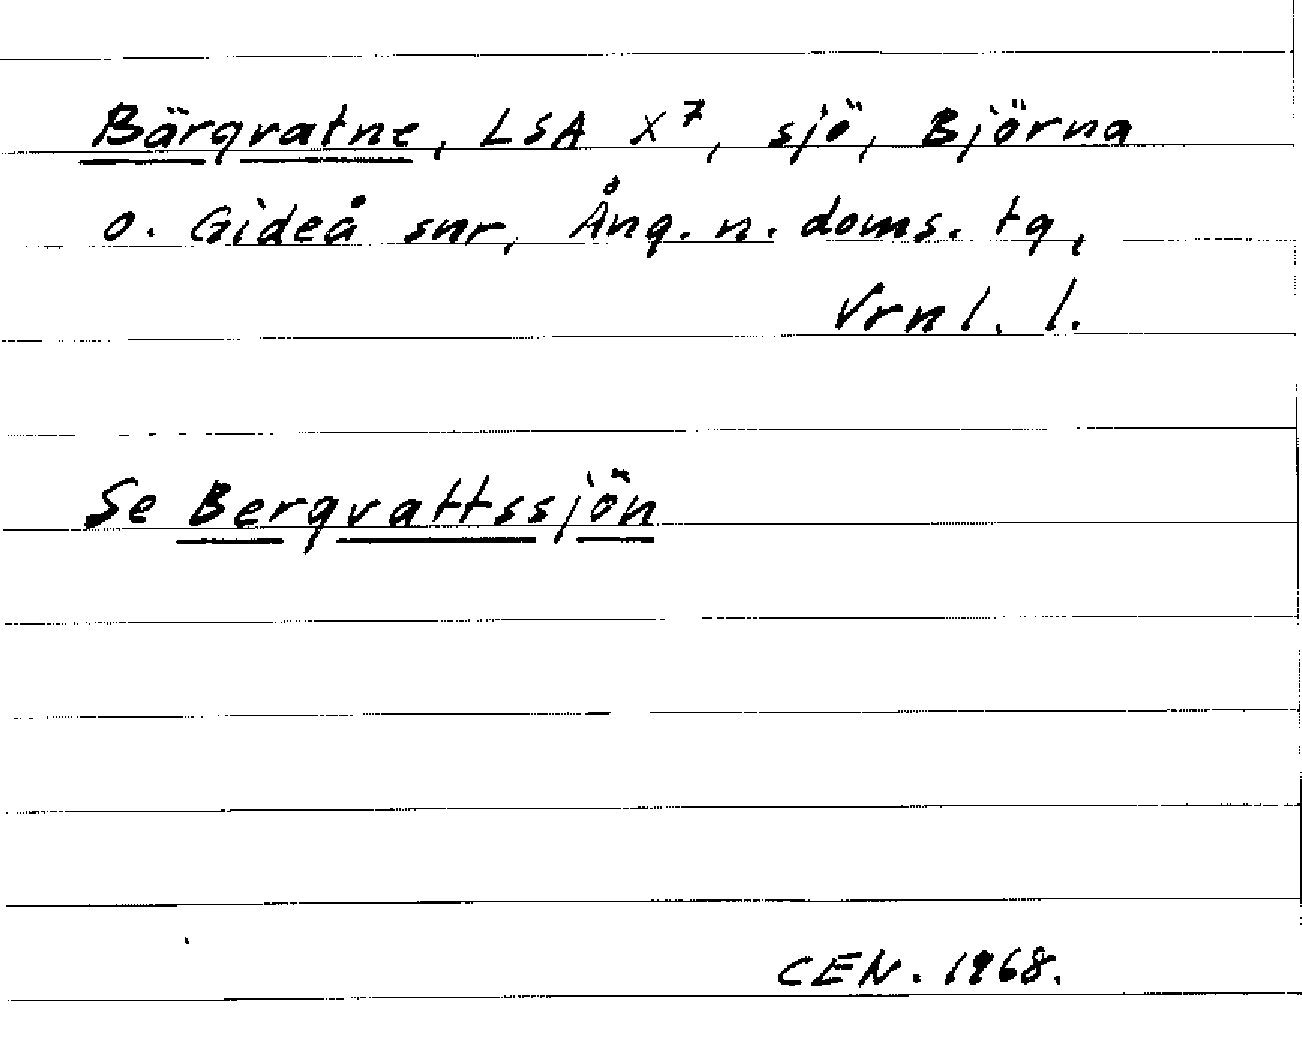 Bärgvatne, LSA X⁷, sjö, Björna
o. Gideå snr, Ång. n. doms. tg,
Vrnl. l.
Se Bergvattssjön
CEN. 1968.